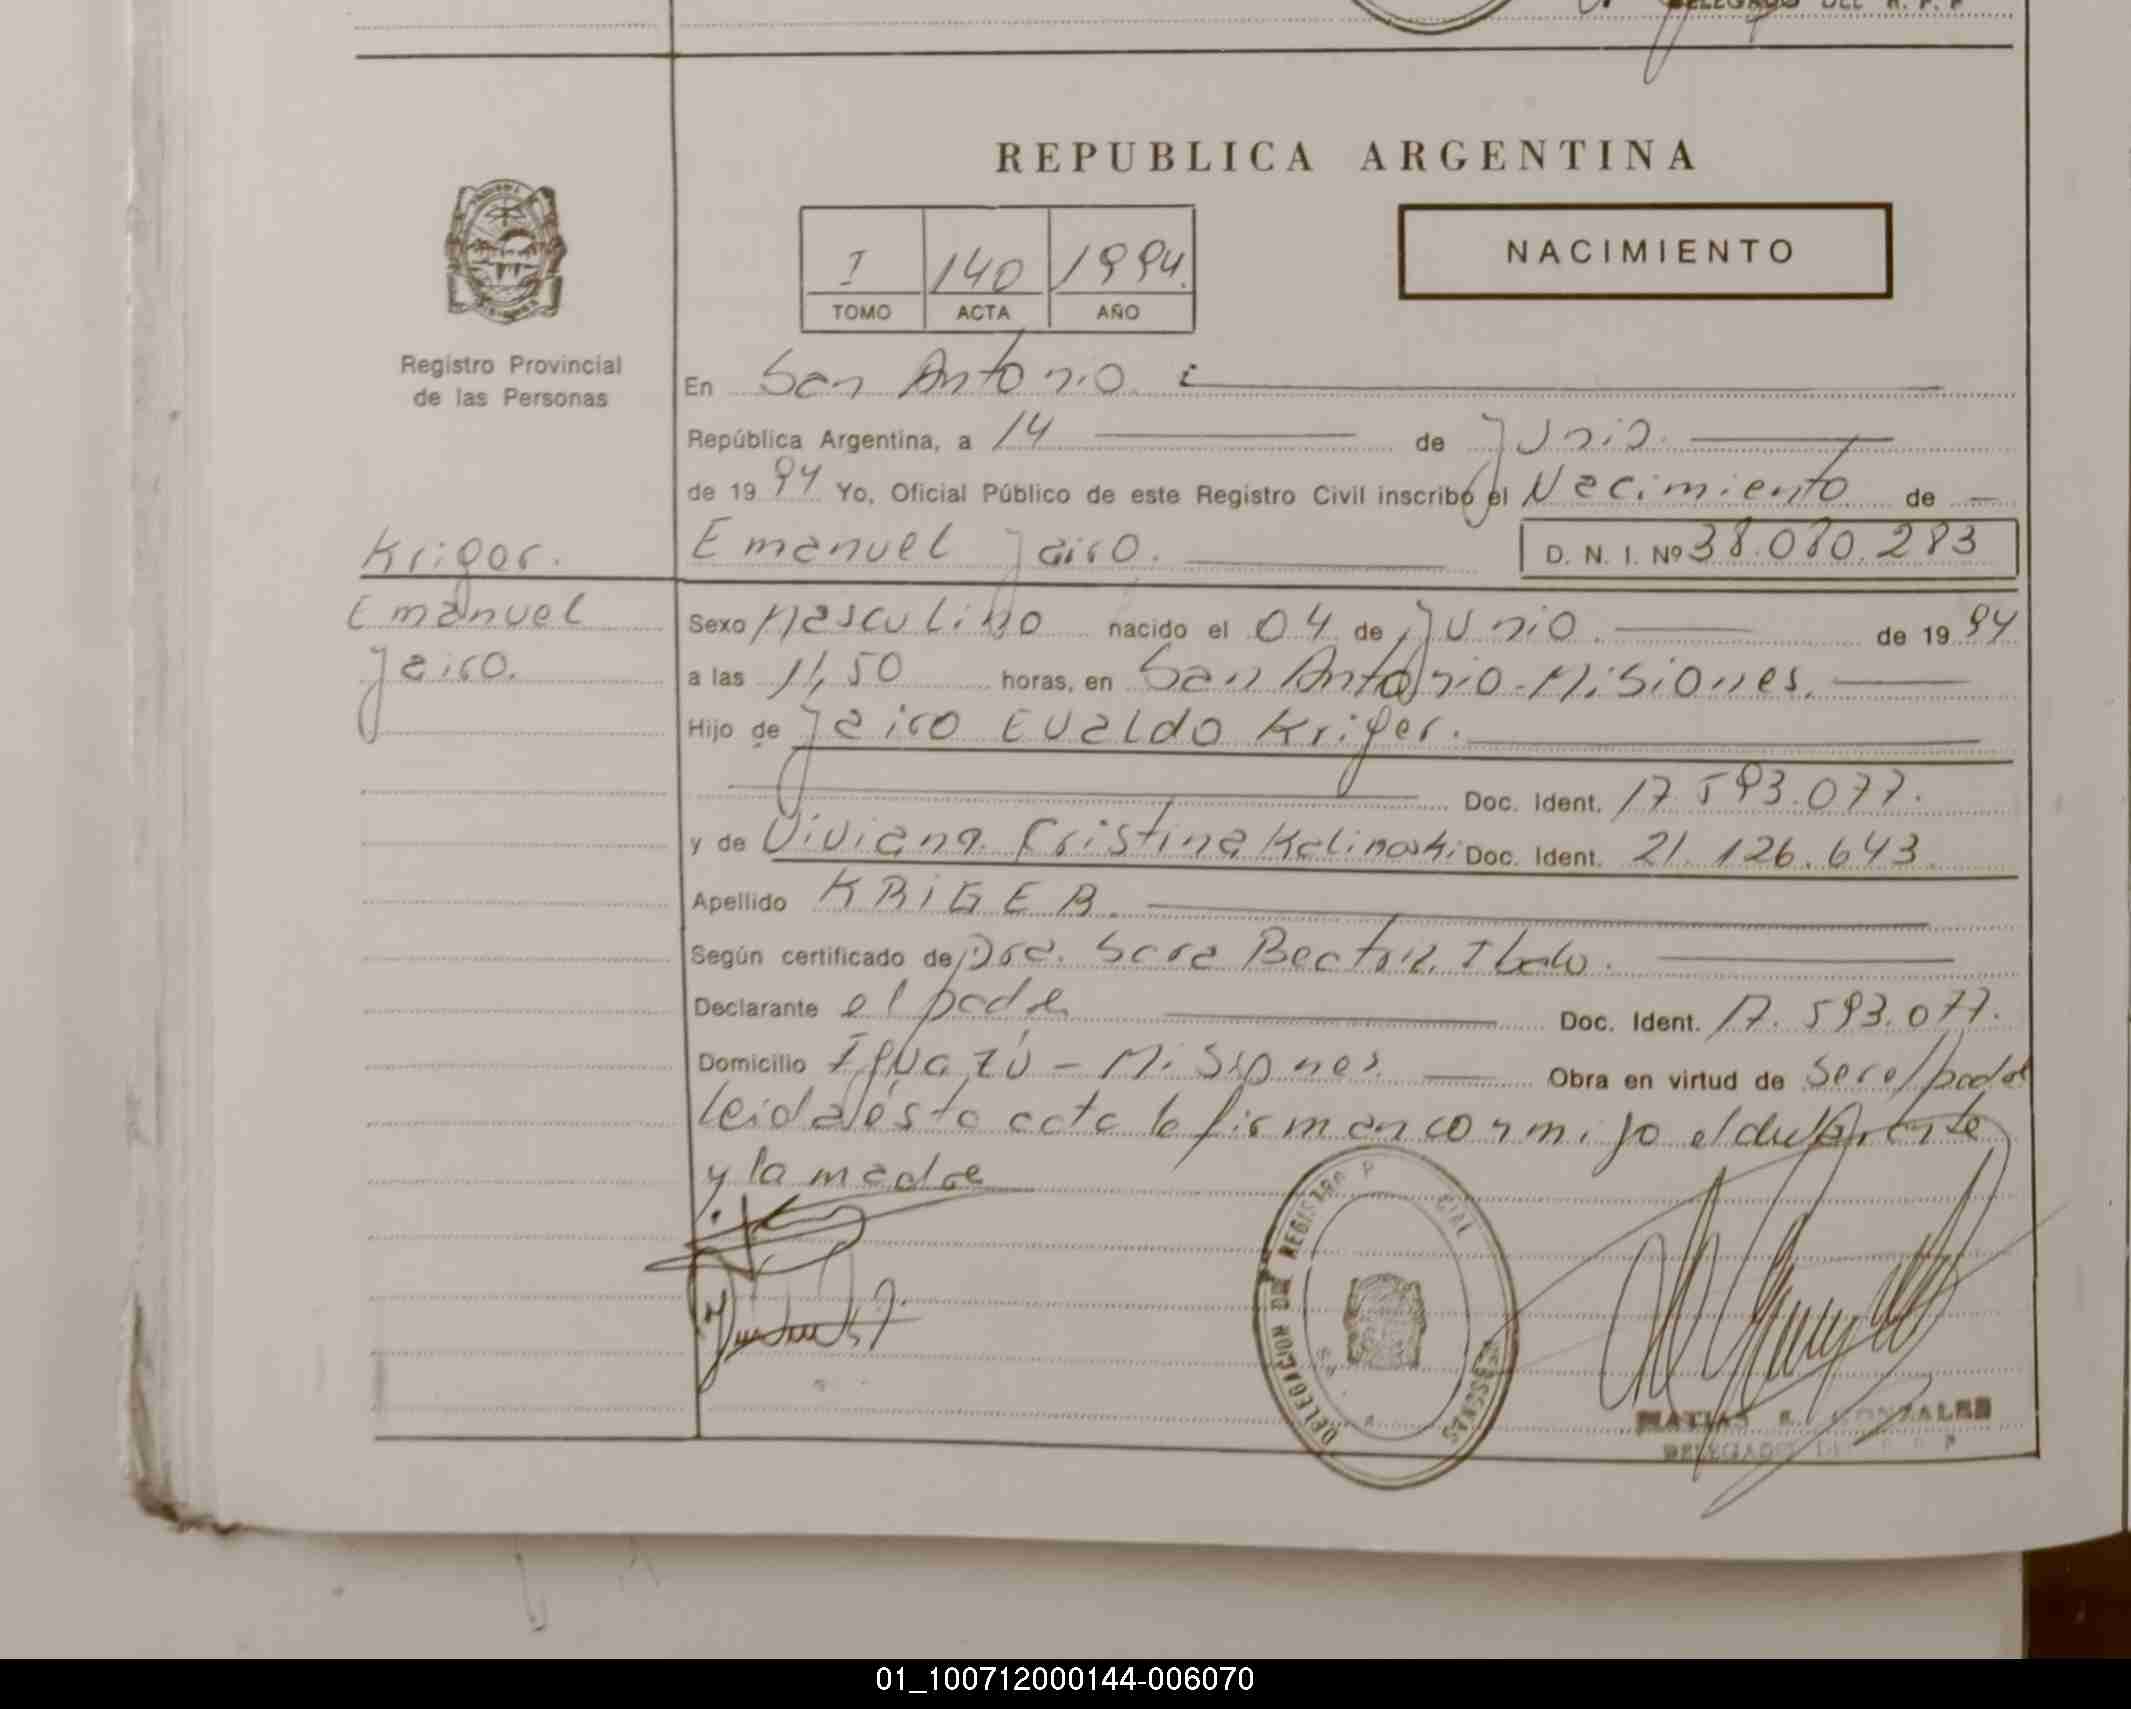 DELEGADO DEL R. P. P
REPUBLICA ARGENTINA
NACIMIENTO
I 140 1994.
TOMO ACTA AÑO
Registro Provincial
de las Personas
En San Antonio.
República Argentina, a 14 de Junio.
de 1994 Yo, Oficial Público de este Registro Civil inscribo el Nacimiento de
Kriger.
Emanuel Jairo. D. N. I. Nº 38.080.283
Emanuel
Jairo.
Sexo Masculino nacido el 04 de Junio. de 1994
a las 11,50 horas, en San Antonio-Misiones.
Hijo de Jairo Evaldo Kriger.
Doc. Ident. 17.593.077.
y de Viviana Cristina Kalinoski Doc. Ident. 21.126.643.
Apellido KRIGER.
Según certificado de Dra. Sara Beatriz
Declarante el padre Doc. Ident. 17.593.077.
Domicilio Iguazú - Misiones Obra en virtud de ser el padre
leida ésta acta la firman conmigo el declarante
y la madre
DELEGACION DEL REGISTRO P CIAL
MATIAS E. GONZALEZ
DELEGADO DEL R P P
01_100712000144-006070